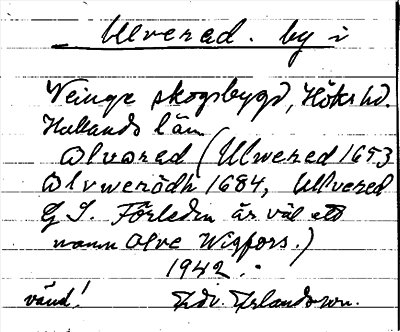 Ulvered. by i
Veinge skogsbygd, Höks hd.
Hallands län
Olvared (Ulwered 1653
Olvwerödh 1684, Ulfvered
G S. Förleden är väl ett
namn Olve Wigfors.)
1942.
vänd! Edv. Erlandsson.